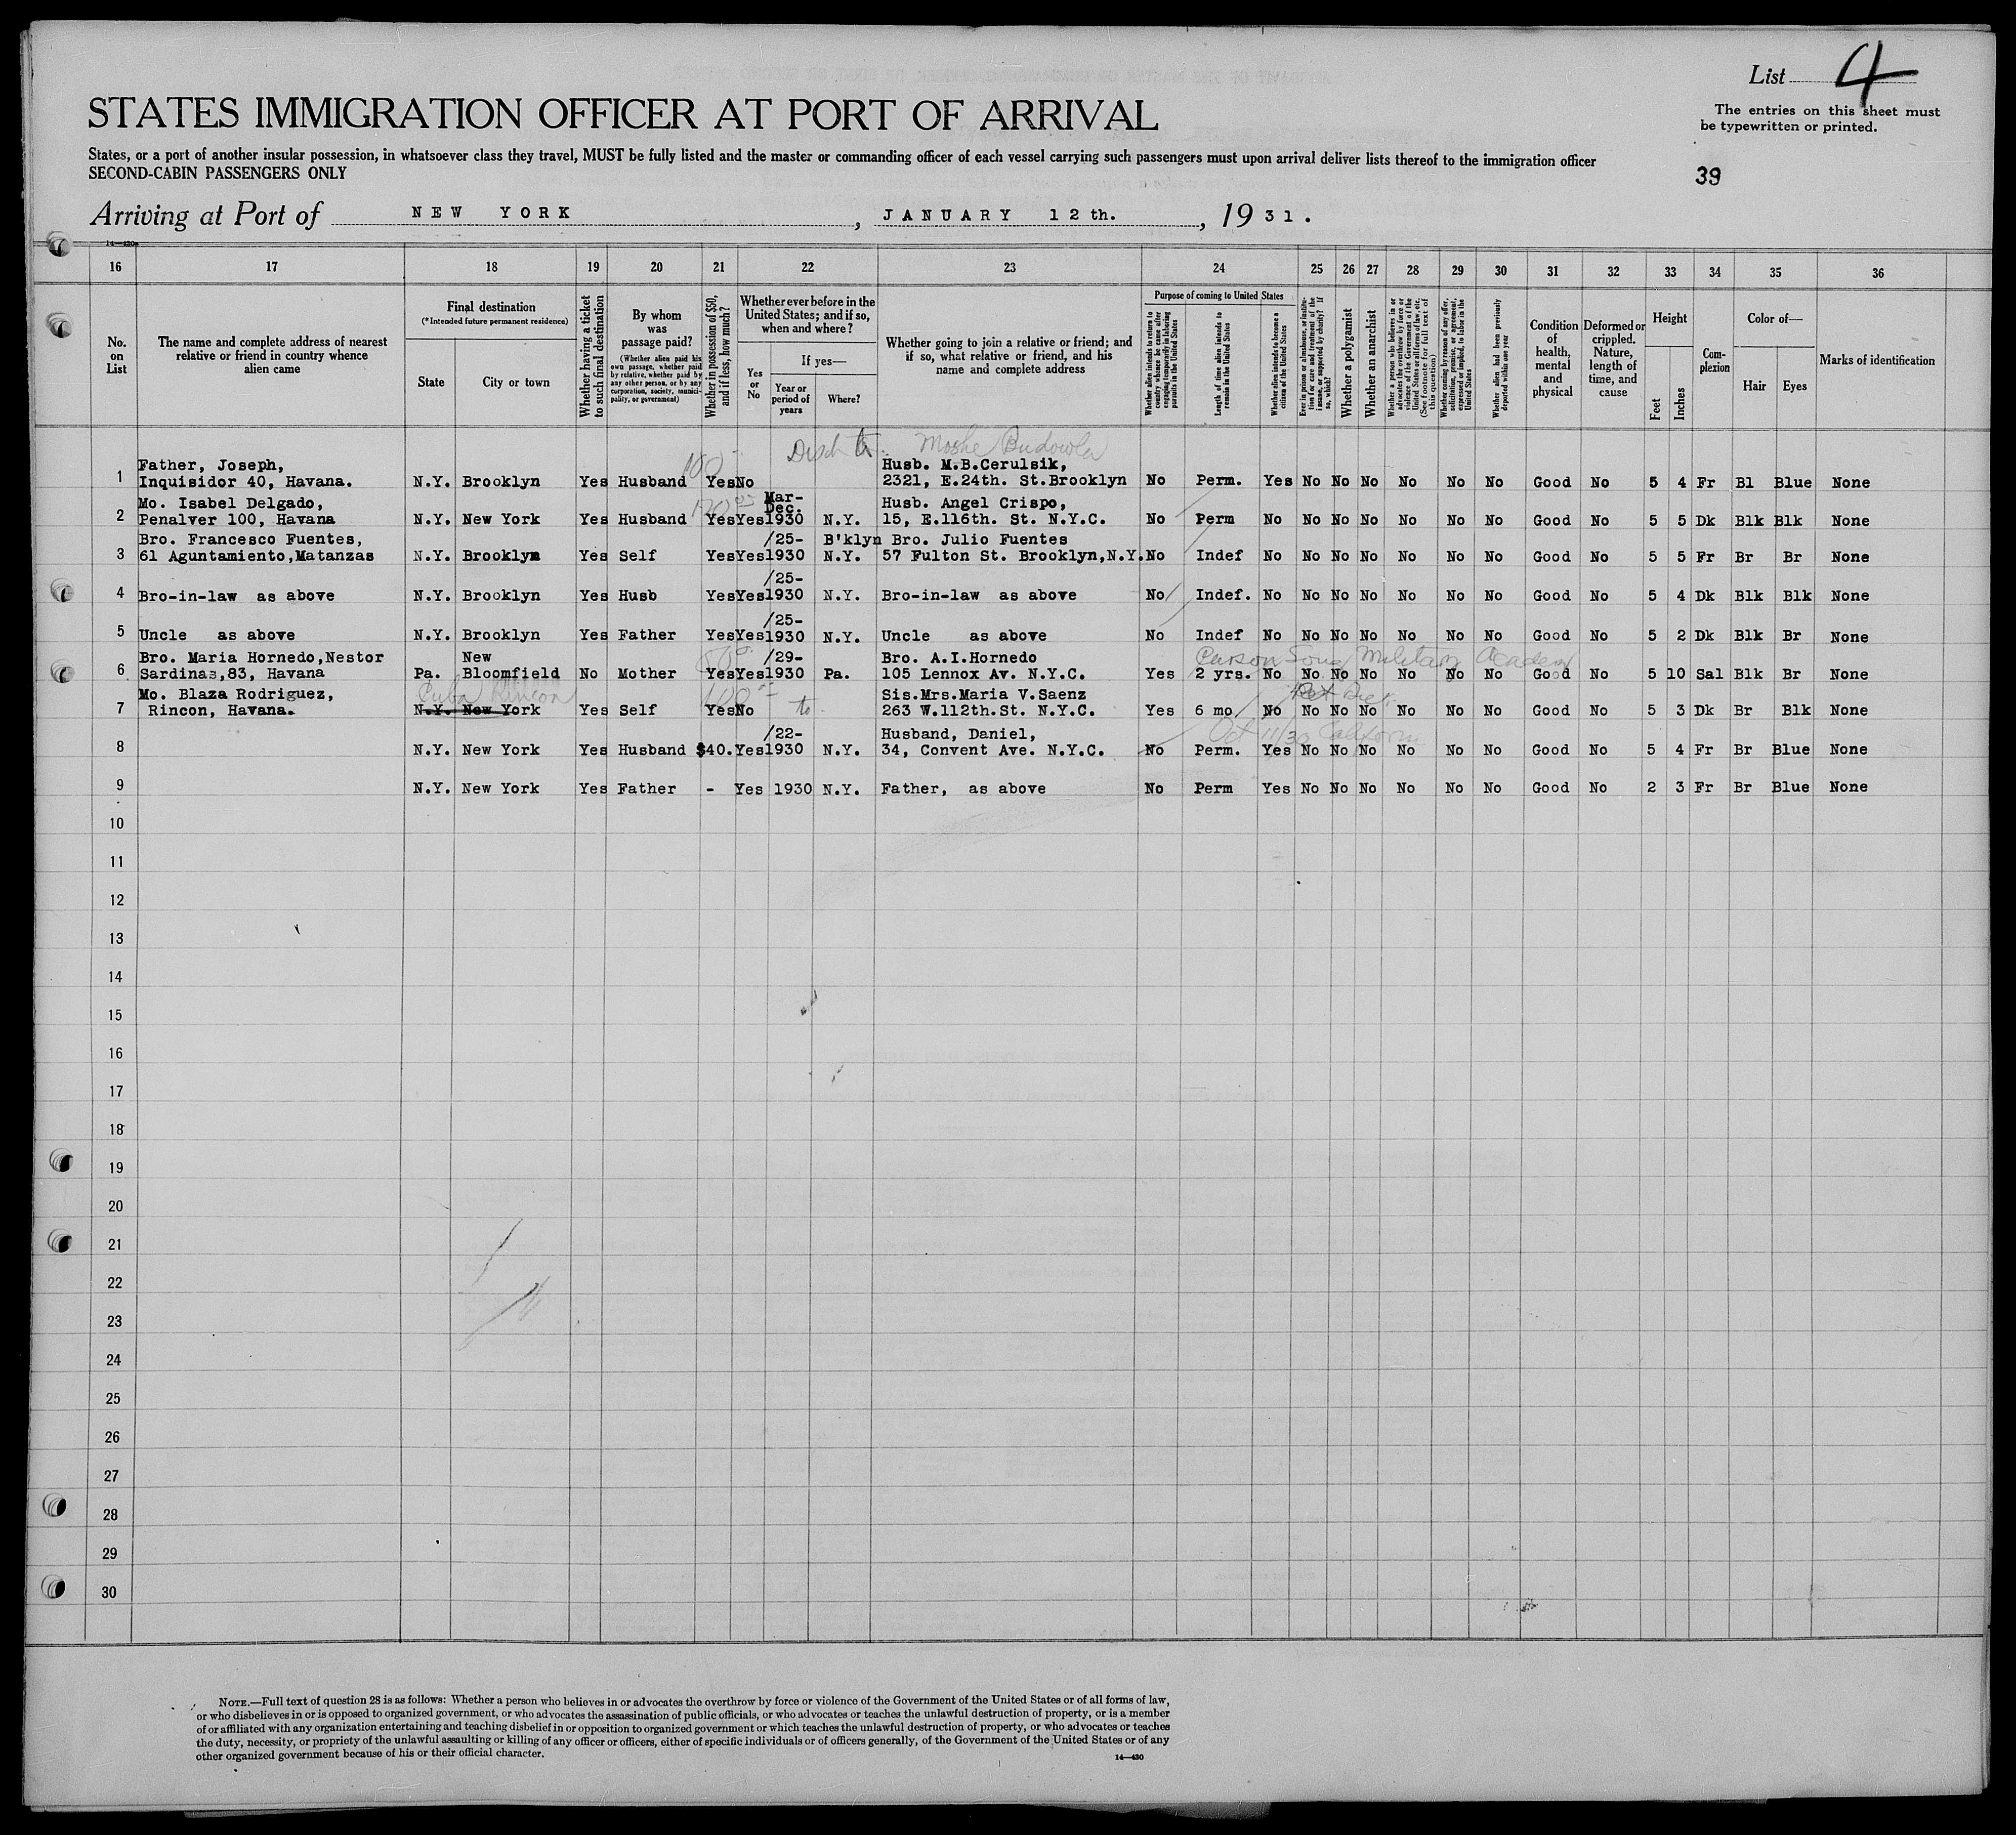 List 4
STATES IMMIGRATION OFFICER AT PORT OF ARRIVAL
The entries on this sheet must
be typewritten or printed.
States, or a port of another insular possession, in whatsoever class they travel, MUST be fully listed and the master or commanding officer of each vessel carrying such passengers must upon arrival deliver lists thereof to the immigration officer
SECOND-CABIN PASSENGERS ONLY
39
Arriving at Port of NEW YORK, JANUARY 12th., 1931.
14—430
16 17 18 19 20 21 22 23 24 25 26 27 28 29 30 31 32 33 34 35 36
No.
on
List
The name and complete address of nearest
relative or friend in country whence
alien came
Final destination
(*Intended future permanent residence)
State
City or town
Whether having a ticket
to such final destination
By whom
was
passage paid?
(Whether alien paid his
own passage, whether paid
by relative, whether paid by
any other person, or by any
corporation, society, munici-
pality, or government)
Whether in possession of $50,
and if less, how much?
Whether ever before in the
United States; and if so,
when and where?
Yes
or
No
If yes—
Year or
period of
years
Where?
Whether going to join a relative or friend; and
if so, what relative or friend, and his
name and complete address
Purpose of coming to United States
Whether alien intends to return to
country whence he came after
engaging temporarily in laboring
pursuits in the United States
Length of time alien intends to
remain in the United States
Whether alien intends to become a
citizen of the United States
Ever in prison or almshouse, or institu-
tion for care and treatment of the
insane, or supported by charity? If
so, which?
Whether a polygamist
Whether an anarchist
Whether a person who believes in or
advocates the overthrow by force or
violence of the Government of the
United States or all forms of law, etc.
(See footnote for full text of
this question)
Whether coming by reason of any offer,
solicitation, promise, or agreement,
expressed or implied, to labor in the
United States
Whether alien had been previously
deported within one year
Condition
of
health,
mental
and
physical
Deformed or
crippled.
Nature,
length of
time, and
cause
Height
Feet
Inches
Com-
plexion
Color of—
Hair
Eyes
Marks of identification
Moshe Budowla
100
1 Father, Joseph,
Inquisidor 40, Havana. N.Y. Brooklyn Yes Husband Yes No Husb. M.B.Cerulsik,
2321, E.24th. St.Brooklyn No Perm. Yes No No No No No No Good No 5 4 Fr Bl Blue None
2 Mo. Isabel Delgado,
Penalver 100, Havana N.Y. New York Yes Husband Yes Yes Mar-
Dec.
1930 N.Y. Husb. Angel Crispo,
15, E.116th. St. N.Y.C. No Perm No No No No No No No Good No 5 5 Dk Blk Blk None
3 Bro. Francesco Fuentes,
61 Aguntamiento,Matanzas N.Y. Brooklyn Yes Self Yes Yes /25-
1930 B'klyn
N.Y. Bro. Julio Fuentes
57 Fulton St. Brooklyn,N.Y. No Indef No No No No No No No Good No 5 5 Fr Br Br None
4 Bro-in-law as above N.Y. Brooklyn Yes Husb Yes Yes /25-
1930 N.Y. Bro-in-law as above No Indef. No No No No No No No Good No 5 4 Dk Blk Blk None
5 Uncle as above N.Y. Brooklyn Yes Father Yes Yes /25-
1930 N.Y. Uncle as above No Indef No No No No No No No Good No 5 2 Dk Blk Br None
Carson Long Military Academy
6 Bro. Maria Hornedo,Nestor
Sardinas,83, Havana Pa. New
Bloomfield No Mother Yes Yes /29-
1930 Pa. Bro. A.I.Hornedo
105 Lennox Av. N.Y.C. Yes 2 yrs. No No No No No No No Good No 5 10 Sal Blk Br None
Cuba Rincon
7 Mo. Blaza Rodriguez,
Rincon, Havana. N.Y. New York Yes Self Yes No Sis.Mrs.Maria V.Saenz
263 W.112th.St. N.Y.C. Yes 6 mo No No No No No No No Good No 5 3 Dk Br Blk None
Oct 11/30 California
8 N.Y. New York Yes Husband $40. Yes /22-
1930 N.Y. Husband, Daniel,
34, Convent Ave. N.Y.C. No Perm. Yes No No No No No No Good No 5 4 Fr Br Blue None
9 N.Y. New York Yes Father - Yes 1930 N.Y. Father, as above No Perm Yes No No No No No No Good No 2 3 Fr Br Blue None
10
11
12
13
14
15
16
17
18
19
20
21
22
23
24
25
26
27
28
29
30
NOTE.—Full text of question 28 is as follows: Whether a person who believes in or advocates the overthrow by force or violence of the Government of the United States or of all forms of law,
or who disbelieves in or is opposed to organized government, or who advocates the assassination of public officials, or who advocates or teaches the unlawful destruction of property, or is a member
of or affiliated with any organization entertaining and teaching disbelief in or opposition to organized government or which teaches the unlawful destruction of property, or who advocates or teaches
the duty, necessity, or propriety of the unlawful assaulting or killing of any officer or officers, either of specific individuals or of officers generally, of the Government of the United States or of any
other organized government because of his or their official character.
14—430